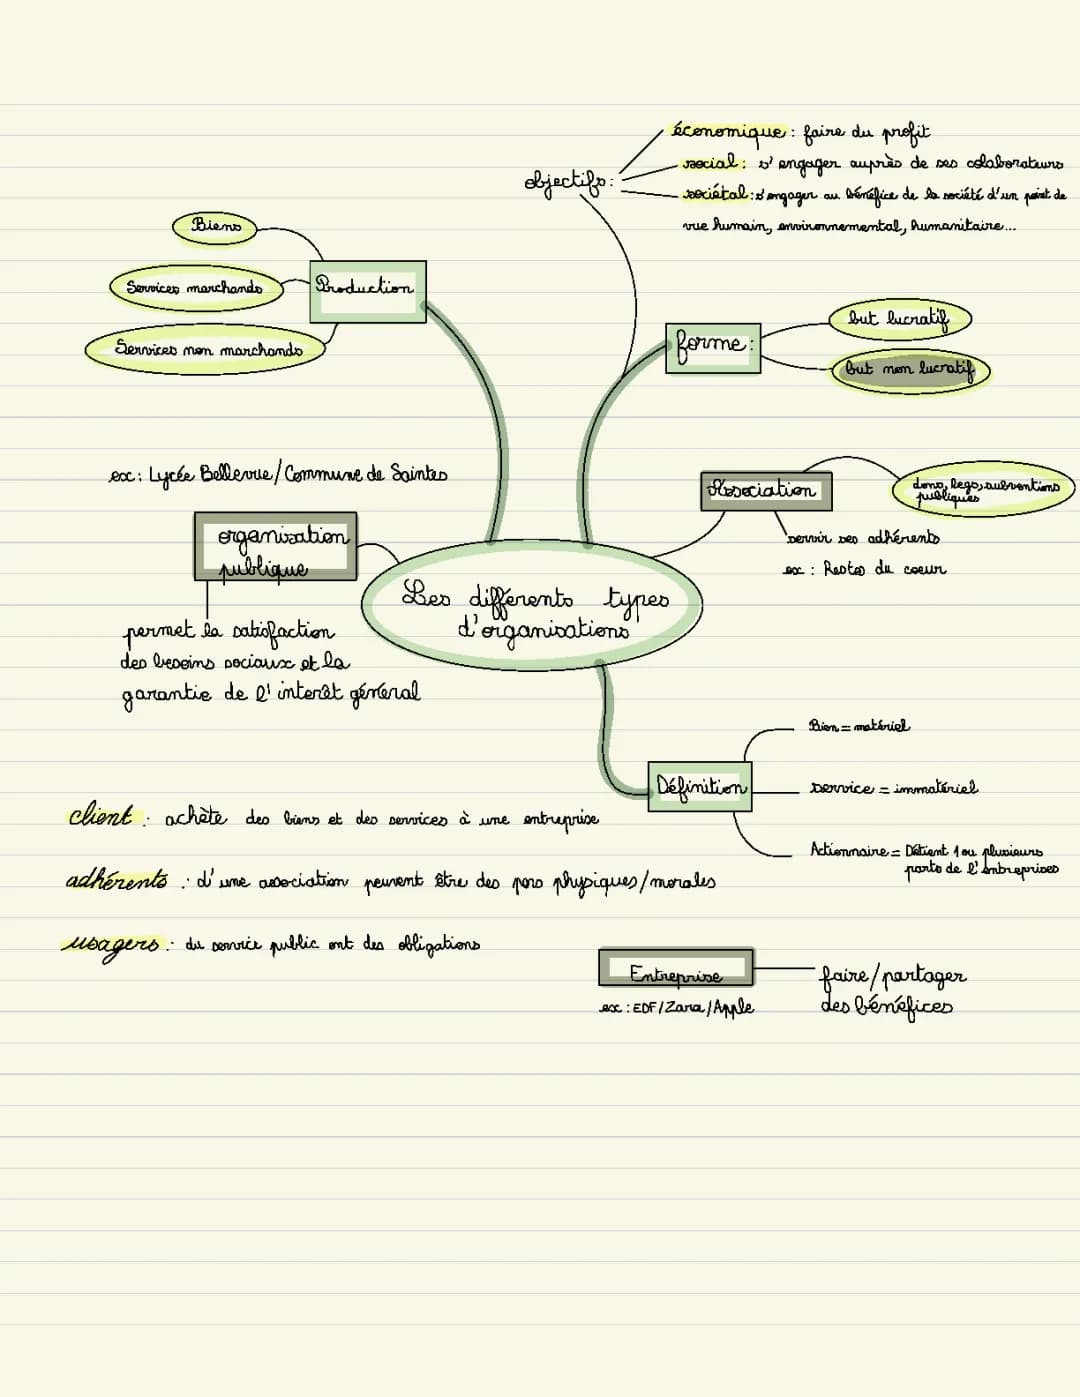 économique : faire du profit
objectifs :
social : s'engager auprès de ses colaborateurs
sociétal : s'engager au bénéfice de la société d'un point de
vue humain, environnemental, humanitaire...
Biens
Services marchands
Production
Services non marchands
forme :
but lucratif
but non lucratif
ex : Lycée Bellevue / Commune de Saintes
organisation
publique
permet la satisfaction
des besoins sociaux et la
garantie de l'interêt géneral
Association
dons, legs, subventions
publiques
servir ses adhérents
ex : Restos du coeur
Les differents types
d'organisations
Définition
Bien = matériel
service = immatériel
Actionnaire = Détient 1 ou plusieurs
parts de l'entreprises
client : achète des biens et des services à une entreprise
adhérents : d'une association peuvent être des pers physiques/morales
usagers : du service public ont des obligations
Entreprise
ex : EDF / Zara / Apple
faire/partager
des bénéfices